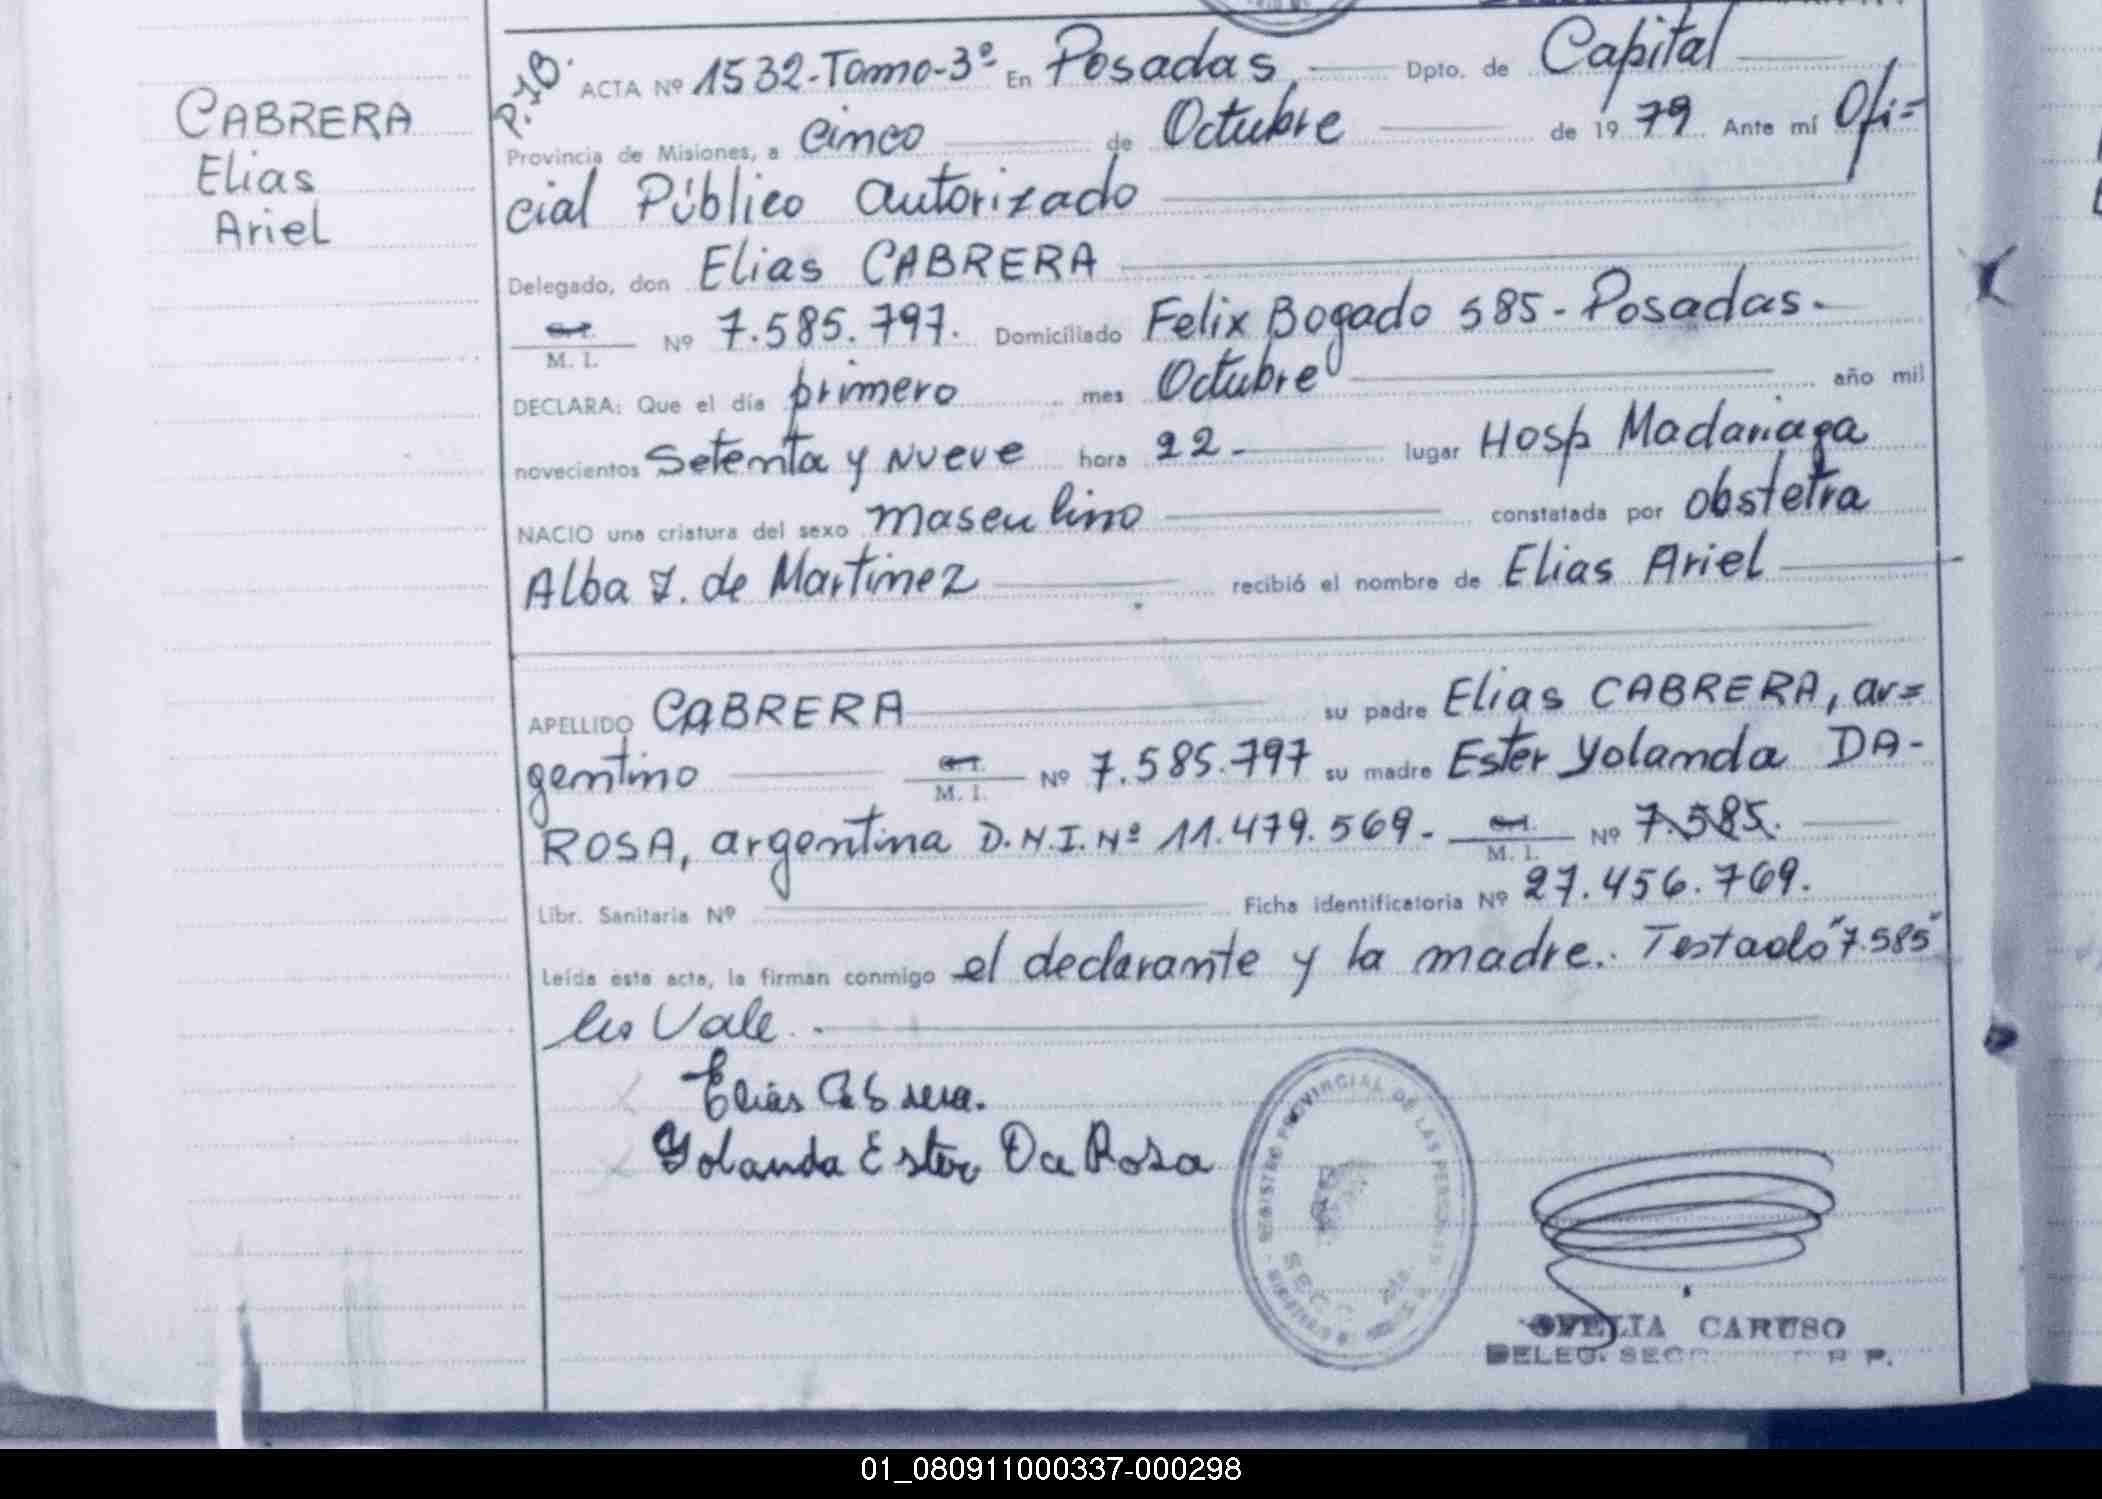 CABRERA
Elias
Ariel
ACTA Nº 1532-Tomo-3º En Posadas Dpto. de Capital
Provincia de Misiones, a cinco de Octubre de 1979 Ante mí Ofi=
cial Público autorizado
Delegado, don Elias CABRERA
M. I. Nº 7.585.797. Domiciliado Felix Bogado 585 - Posadas -
DECLARA: Que el día primero mes Octubre año mil
novecientos setenta y nueve hora 22 - lugar Hosp Madariaga
NACIO una criatura del sexo masculino constatada por obstetra
Alba I. de Martinez recibió el nombre de Elias Ariel
APELLIDO CABRERA su padre Elias CABRERA, ar=
gentino M. I. Nº 7.585.797 su madre Ester Yolanda DA-
ROSA, argentina D.N.I. Nº 11.479.569 - M. I. Nº 7.585.
Libr. Sanitaria Nº Ficha identificatoria Nº 27.456.769.
Leída esta acta, la firman conmigo el declarante y la madre. Testado "7.585"
Vale.
Elias Cabrera.
Yolanda Ester Da Rosa
REGISTRO PROVINCIAL DE LAS PERSONAS
SECC
OFELIA CARUSO
DELEG. SECC
01_080911000337-000298